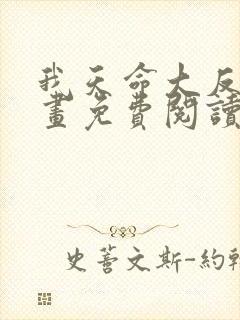 我天命大反
畫免費閱讀
史蒂文斯-約翰